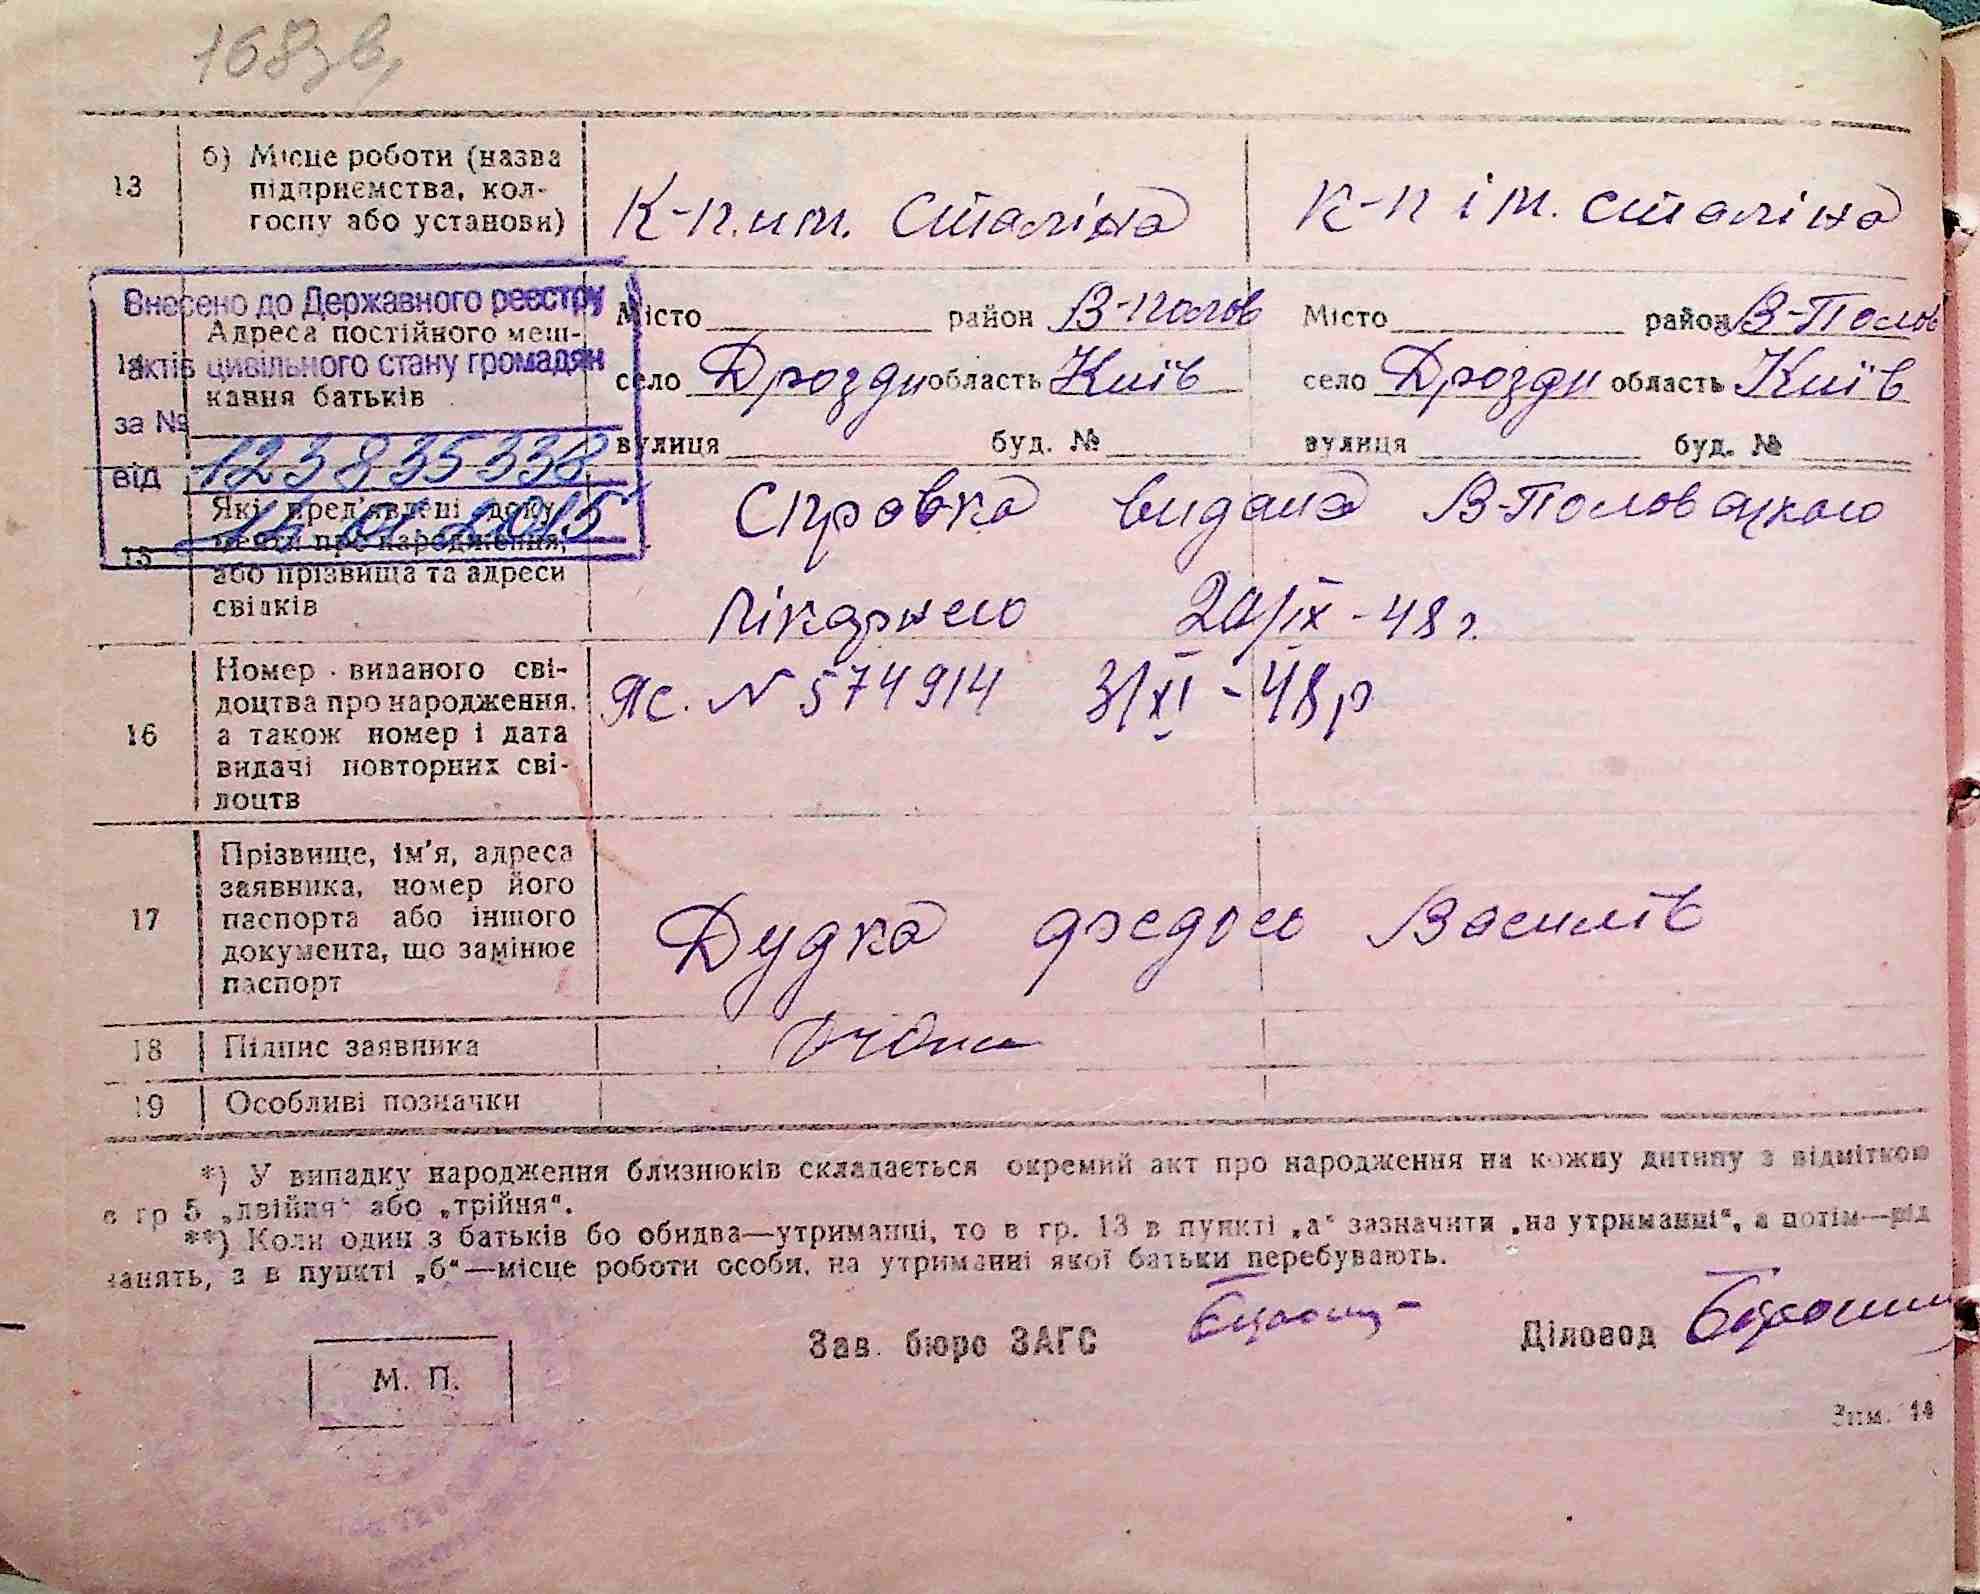 168зв,
13 б) Місце роботи (назва
підприємства, кол-
госпу або установи)
К-п. им. Сталіна К-п ім. Сталіна
Внесено до Державного реєстру
актів цивільного стану громадян
за № 123835338
від 14 01 2015
14 Адреса постійного меш-
кання батьків
Місто район В-Полов Місто район В-Полов
село Дрозди область Київ село Дрозди область Київ
вулиця буд. № вулиця буд. №
15 Які пред'явлені доку-
менти про народження,
або прізвища та адреси
свідків
Справка видана В-Половецкою
лікарнею 20/ІХ-48 г.
16 Номер виданого сві-
доцтва про народження,
а також номер і дата
видачі повторних сві-
доцтв
ЯС. N 574914 3/ХІ-48р
17 Прізвище, ім'я, адреса
заявника, номер його
паспорта або іншого
документа, що замінює
паспорт
Дудка Василів
18 Підпис заявника
19 Особливі позначки
*) У випадку народження близнюків складається окремий акт про народження на кожну дитину з відміткою
в гр 5 „двійня“ або „трійня“.
**) Коли один з батьків бо обидва—утриманці, то в гр. 13 в пункті „а“ зазначити „на утриманні“, а потім—рід
занять, а в пункті „б“—місце роботи особи, на утриманні якої батьки перебувають.
Зав. бюро ЗАГС Діловод
М. П.
Зам. 14